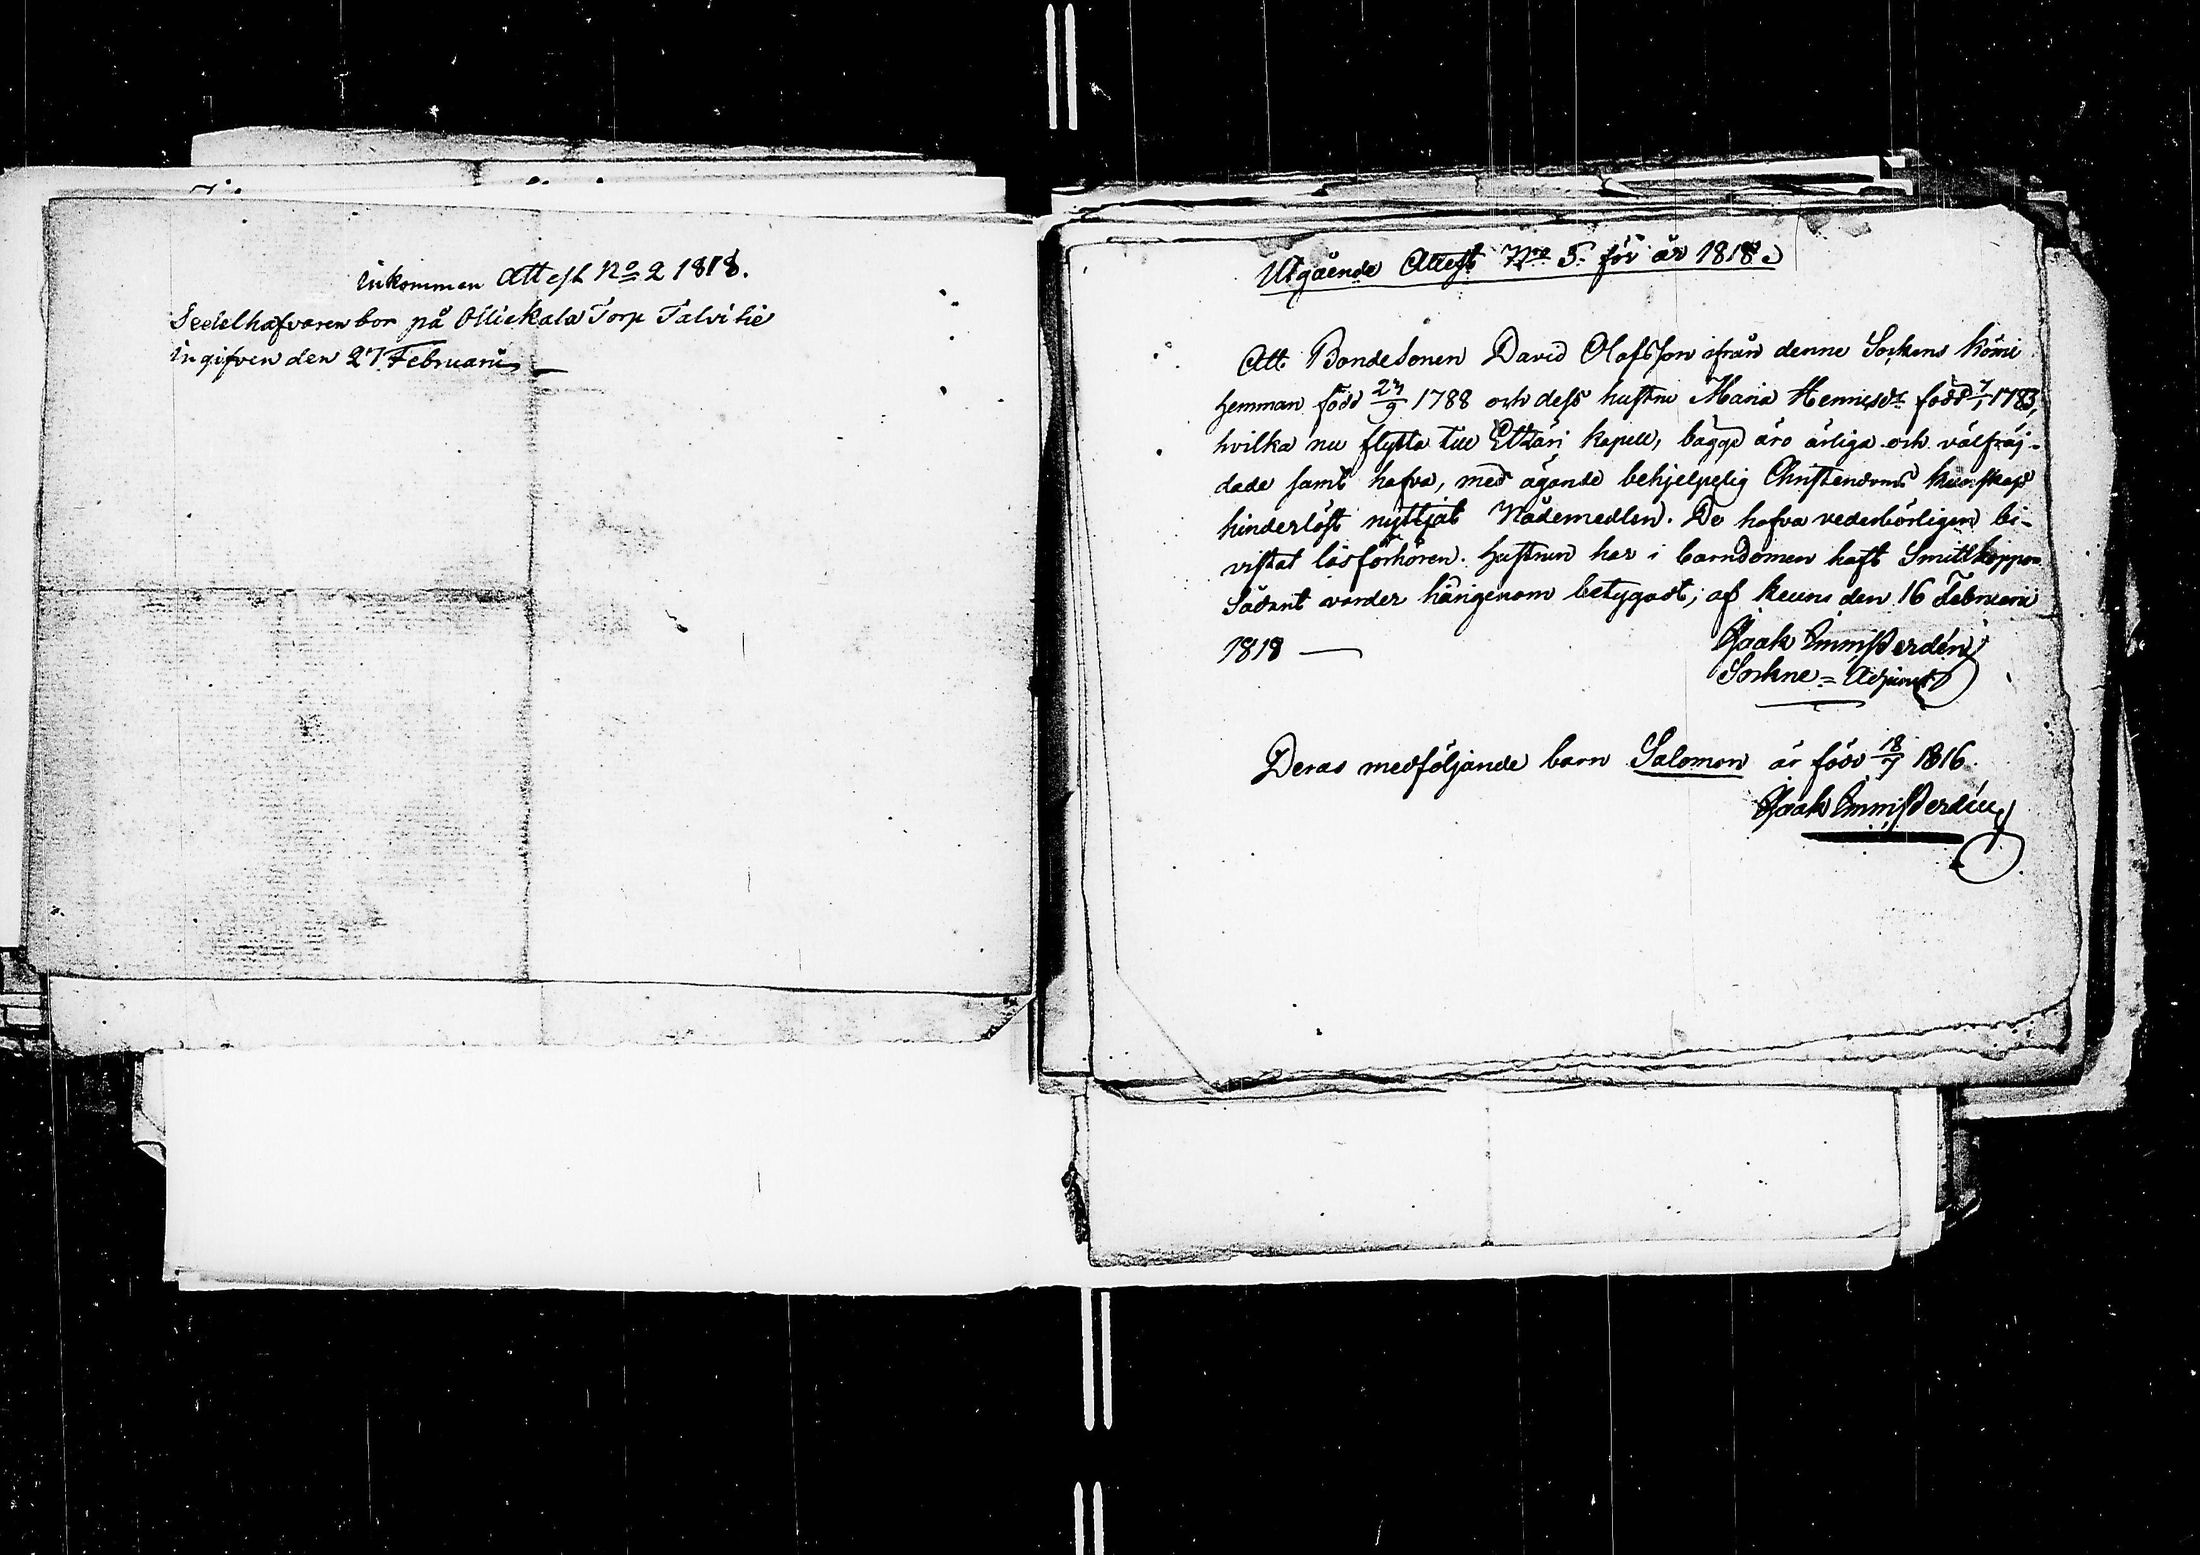 Inkommen Attest No 2 1818.
Sedelhafvaren bor på Ollickala Torp Talvitie
ingifven den 27 Februarii
Utgående Attest No 5 för år 1818.
Att Bondesonen David Olofsson ifrån denne Sockens Kömi
hemman född 23/9 1788 och dess hustru Maria Henricsdr född 7/1 1783,
hvilka nu flytta till Etzäri kapell, bägge äro ärliga och välfräj-
dade samt hafva, med ägande behjelpelig Christendoms kunskap
hinderlöst nyttjat Nådemedlen. De hafva vederbörligen bi-
vistat läsförhören. Hustrun har i barndomen haft Smittkoppor
Sådant varder härigenom betygadt; af Keuru den 16 Februarii
1818 —
Isaak
Sockne = Adjunct
Deras medföljande barn Salomon är född 18/7 1816.
Isaak